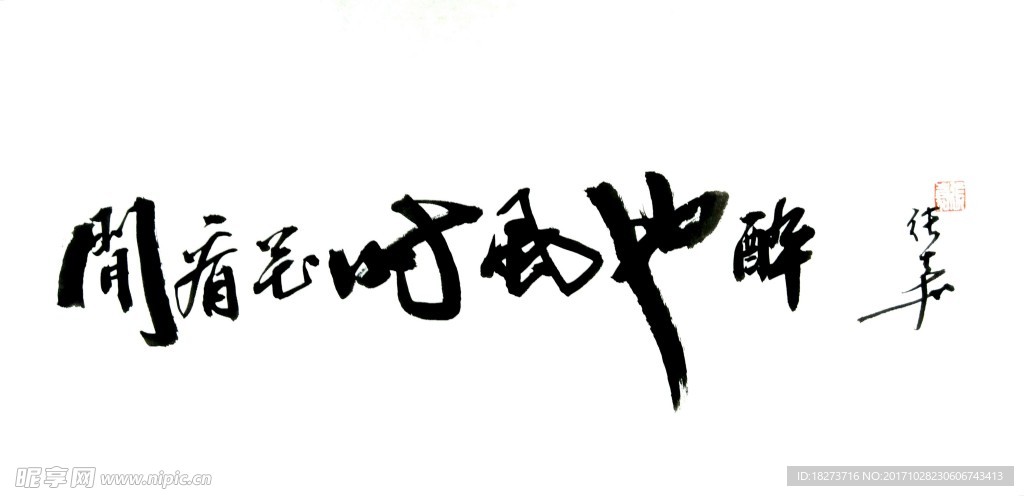 閒看花時風也醉
张嘉
昵享网 www.nipic.cn
ID:18273716 NO:20171028230606743413